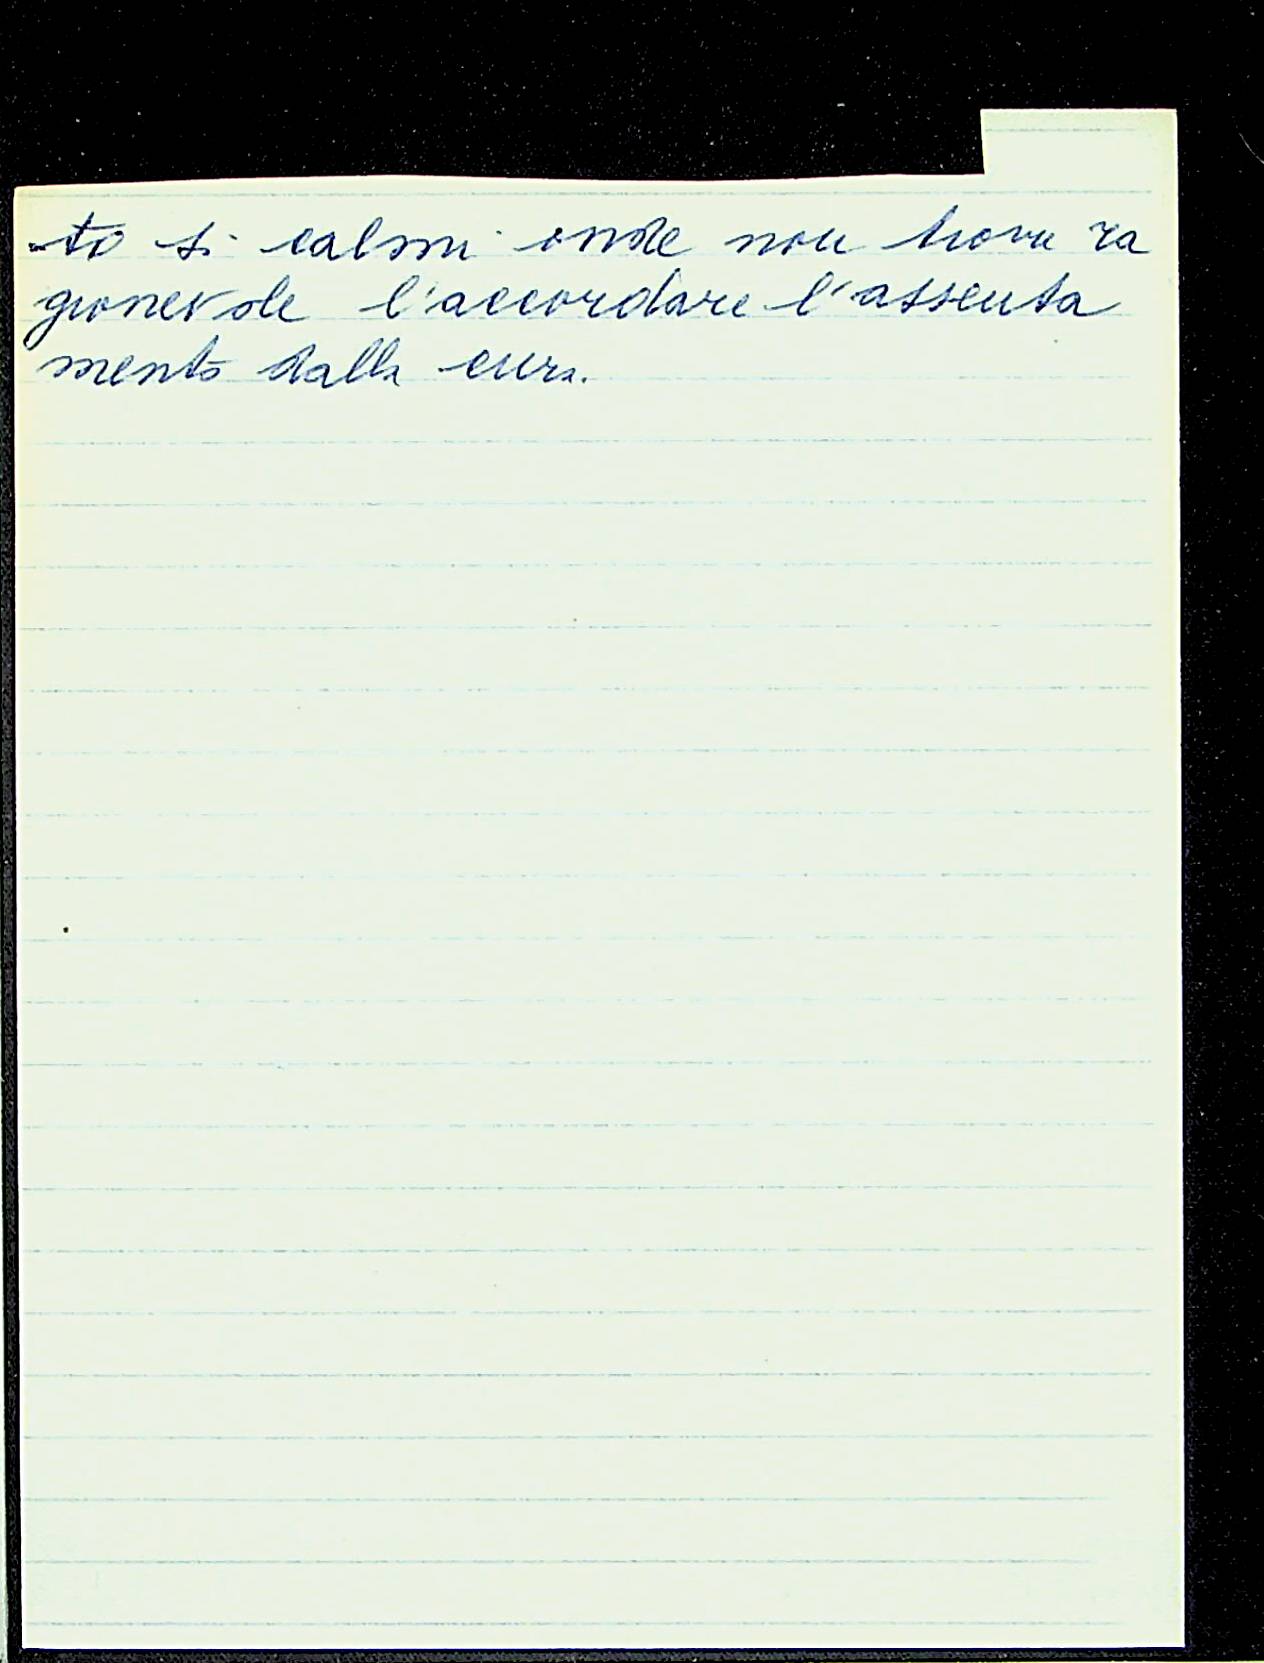 -to si calmi onde non trova ra
gionevole l'accordare l'assenta
mento dalla cura.